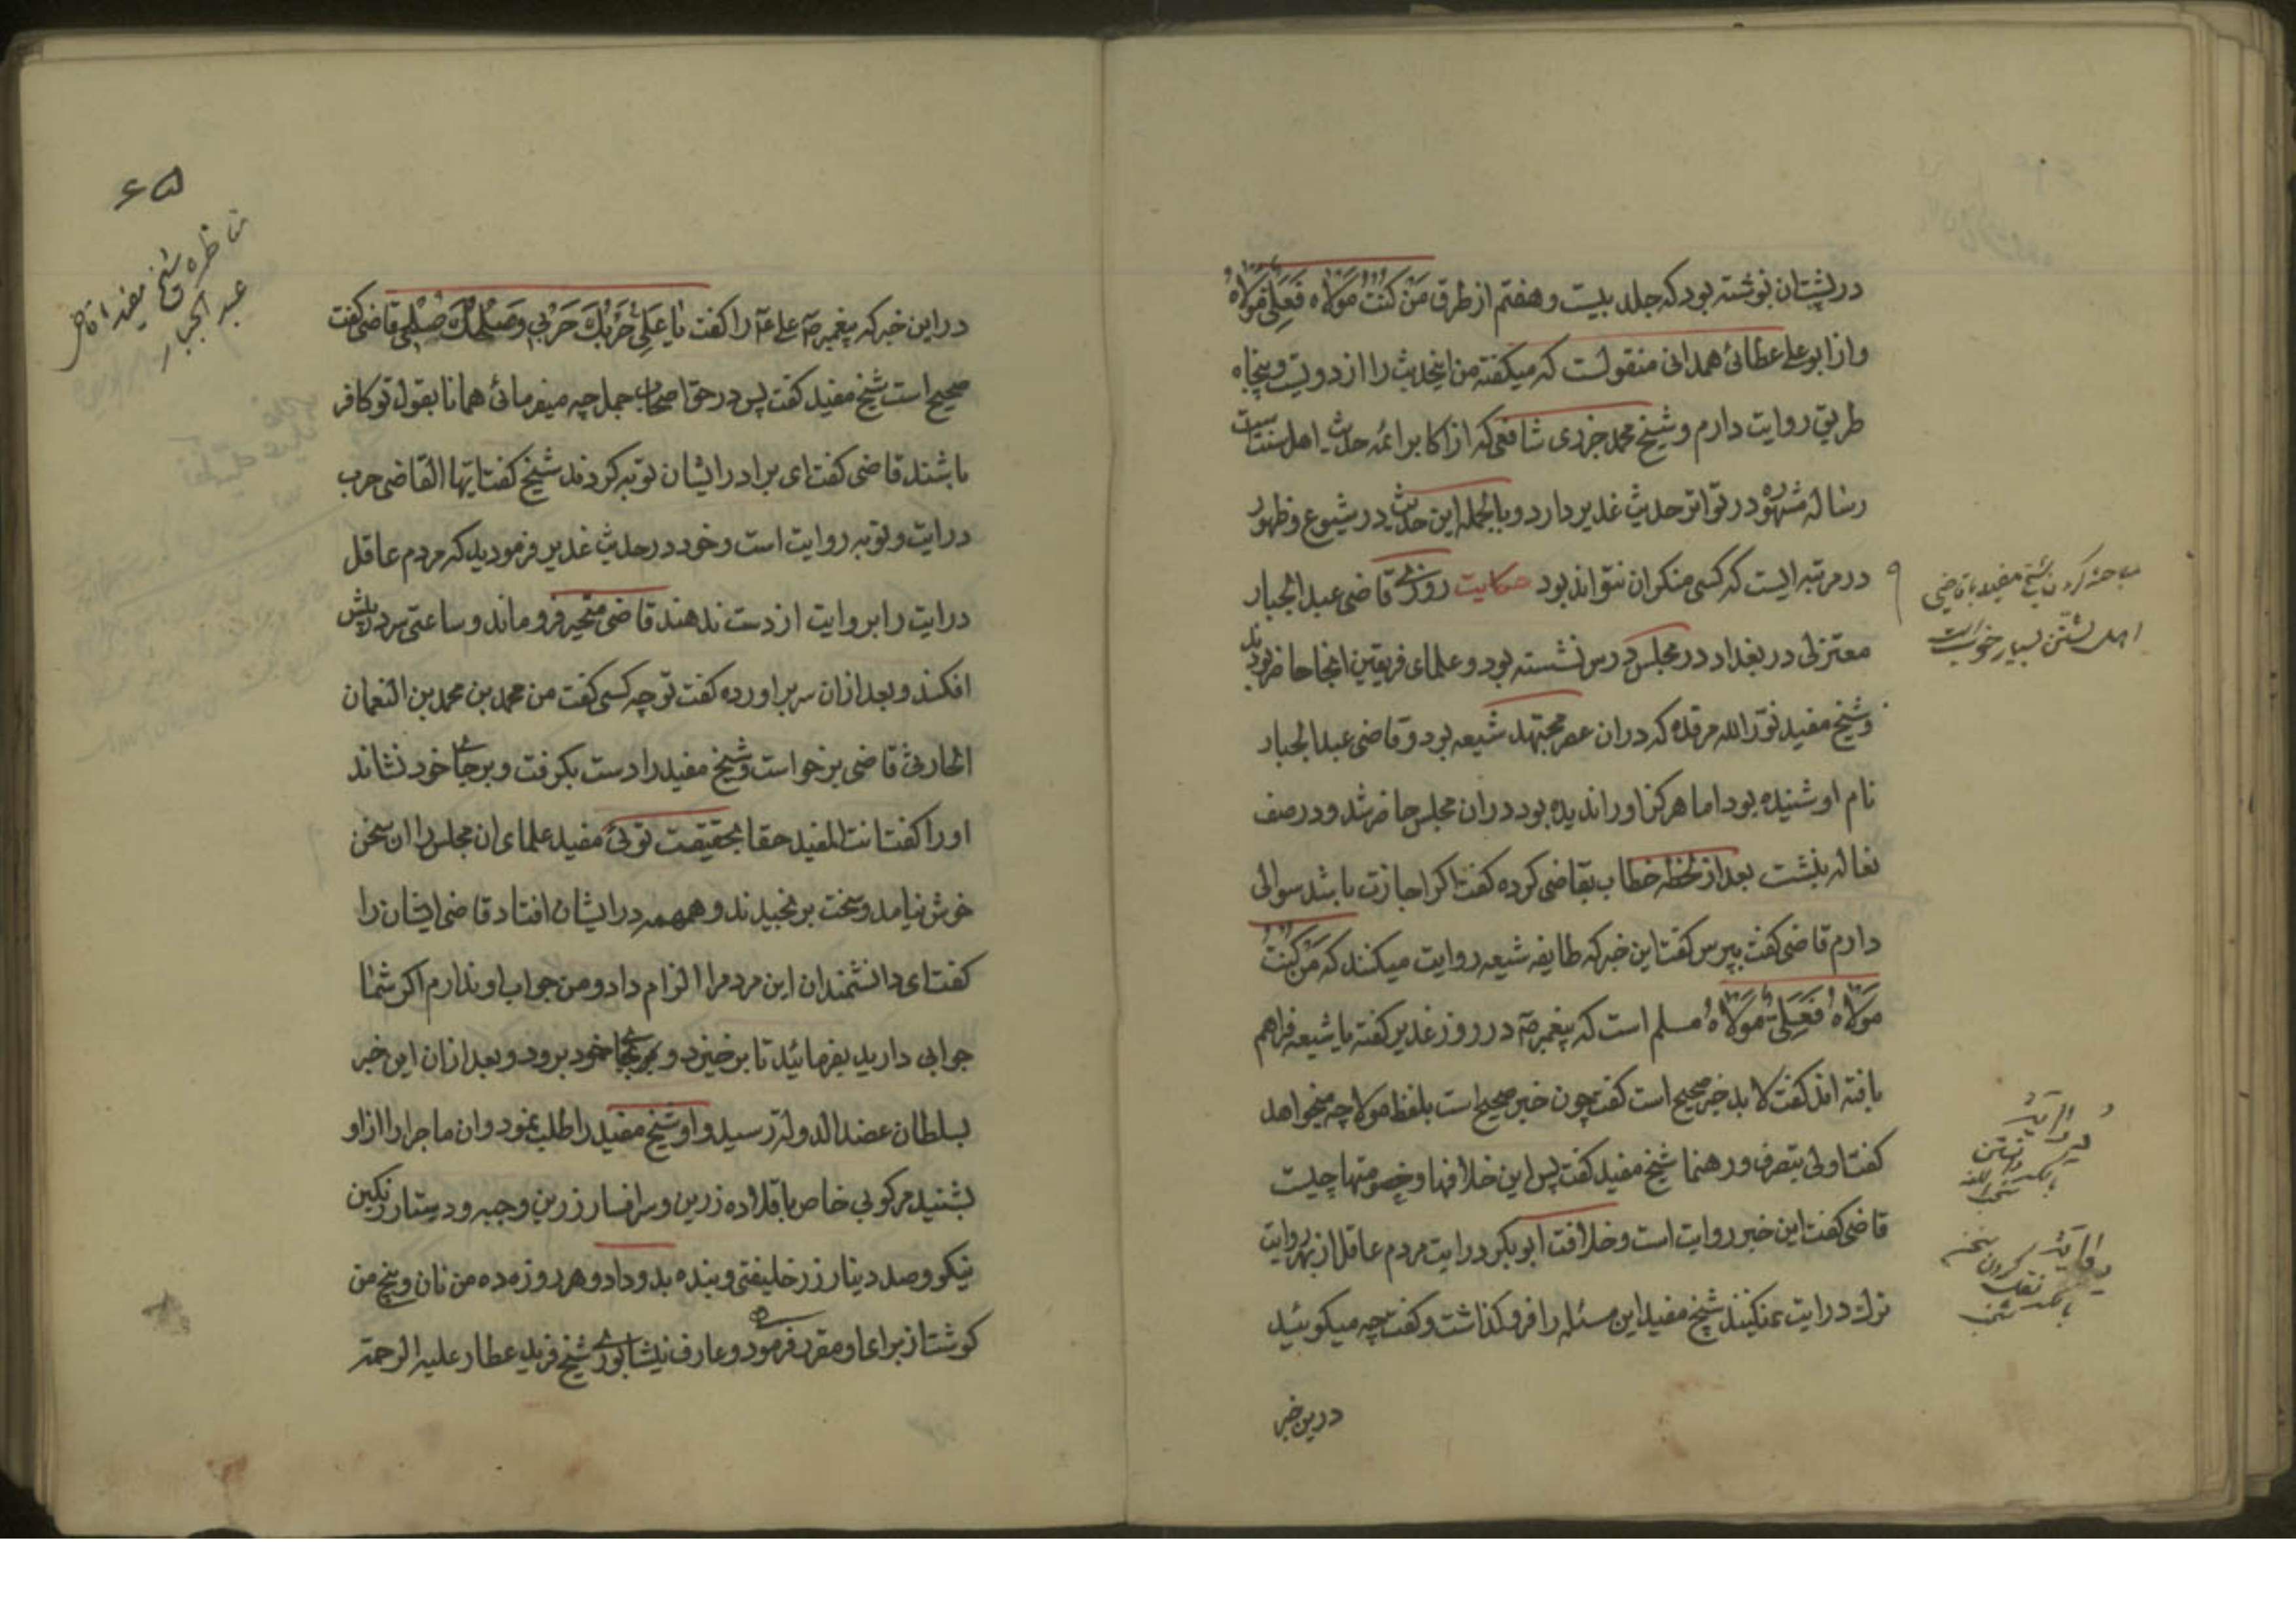 در پشتان نوشته بود که جلد بیست و هفتم از طرق مَنْ کُنْتُ مَوْلاهُ فَعَلِیٌّ مَوْلاهُ
و از ابو علی عطائی همدانی منقولست که میکفته من اینحدیث را از دویست و پنجاه
طریق روایت دارم و شیخ محمد جزری شافعی که از اکابر ائمه حدیث اهل سنت است
رساله مشهوره در تواتر حدیث غدیر دارد و بالجمله این حدیث در شیوع و ظهور
در مرتبه ایست که کسی منکر ان نتواند بود حکایت روزی قاضی عبد الجبار
معتزلی در بغداد در مجلس درس نشسته بود و علمای فریقین انجا حاضر بودند
و شیخ مفید نوّر الله مرقده که در ان عصر مجتهد شیعه بود و قاضی عبد الجبار
نام او شنیده بود اما هرکز او را ندیده بود در ان مجلس حاضر شد و در صف
نعاله بنشست بعد از لحظه خطاب بقاضی کرده کفت اکر اجازت باشد سوالی
دارم قاضی کفت بپرس کفت این خبر که طایفه شیعه روایت میکنند که مَنْ کُنْتُ
مَوْلاهُ فَعَلِیٌّ مَوْلاهُ مسلم است که پیغمبر صَ در روز غدیر کفته یا شیعه فراهم
بافته اند کفت لابد خبر صحیح است کفت چون خبر صحیح است بلفظ مولا چه میخواهد
کفت اولی بتصرف و رهنما شیخ مفید کفت پس این خلافها و خصومتها چیست
قاضی کفت این خبر روایت است و خلافت ابو بکر درایت مردم عاقل از بهر روایت
ترک درایت نمیکنند شیخ مفید این مسئله را فرو کذاشت و کفت چه میکوئید
درین خبر
مباحثه کردن شیخ مفید با قاضی
اهل تسنن بسیار خوبست
درایت
دانستن
روایت
نقل کردن سخن
۶۵
مناظره شیخ مفید با قاضی
عبد الجبار
در این خبر که پیغمبر صَ علی عَ را کفت یا عَلِیُّ حَرْبُکَ حَرْبی وَ سِلْمُکَ سِلْمی قاضی کفت
صحیح است شیخ مفید کفت پس در حق اصحاب جمل چه میفرمائی همانا بقول تو کافر
باشند قاضی کفت ای برادر ایشان توبه کردند شیخ کفت ایها القاضی حرب
درایت و توبه روایت است و خود در حدیث غدیر فرمودید که مردم عاقل
درایت را بروایت از دست ندهند قاضی متحیر فرو ماند و ساعتی سر در پیش
افکند و بعد از ان سر براورده کفت تو چه کسی کفت من محمد بن محمد بن النعمان
الحارثی قاضی برخواست و شیخ مفید را دست بکرفت و بر جای خود نشاند
او را کفت انت المفید حقا بحقیقت توئی مفید علمای ان مجلس را ان سخن
خوش نیامد و سخت برنجیدند و همهمه در ایشان افتاد قاضی ایشان را
کفت ای دانشمندان این مرد مرا الزام داد و من جواب او ندارم اکر شما
جوابی دارید بفرمائید تا برخیزد و بجای خود برود و بعد از ان این خبر
بسلطان عضد الدوله رسید و او شیخ مفید را طلب نمود و ان ماجرا را از او
بشنید مرکوبی خاص با قلاده زرین و سر افسار زرین و جبه و دستار رنکین
نیکو و صد دینار زر خلیفتی و بنده بدو داد و هر روزه ده من نان و پنج من
کوشت از برای او مقرر فرمود و عارف نیشابوری شیخ فرید عطار علیه الرحمة